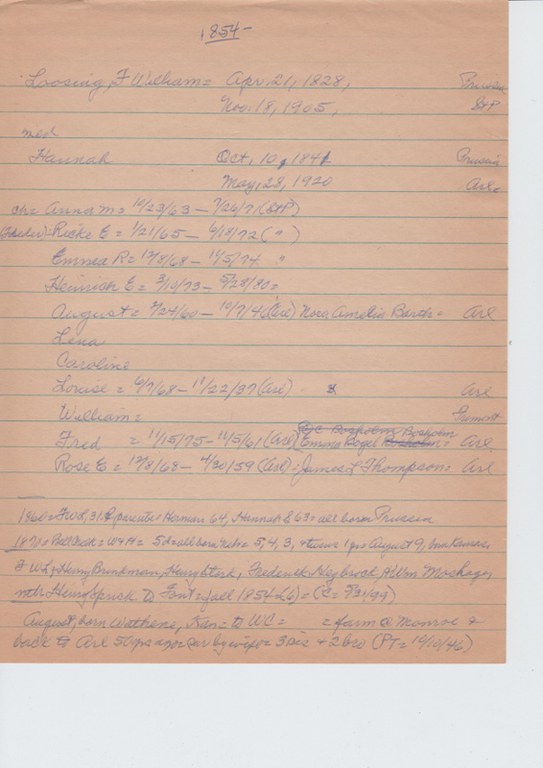 1854-
Loosing, F William = Apr. 21, 1828, Prussia
Nov. 18, 1905, StP
med
Hannah Oct, 10, 1841 Prussia
May, 28, 1920 Arl.
ch = Anna M = 10/23/63 - 7/26/71 (StP)
Ricke E = 1/21/65 - 6/18/72 ( " )
Emmea R = 12/8/68 - 11/5/74 "
Heinrich E = 3/10/73 - 5/28/80 =
August = 2/24/60 - 10/7/46 (Arl) Nora Amelia Barth = Arl
Lena
Caroline
Louise = 6/7/68 - 11/22/37 (Arl) x Arl
William = Fremont
Fred = 11/15/75 - 11/5/61 (Arl) Emma Rogel = Arl
Rose E = 12/8/68 - 4/30/59 (Arl) = James L Thompson = Arl
1860 = FWd, 31. & parents = Herman 64, Hannah S 63 = all born Prussia
1870 = Bell Creek = W & H = 5 d = all born Nebr = 5, 4, 3, & twins 1 yr = August 9, born Kansas
& WL = Henry Brinkman, Henry Stork, Frederick Heybrock, & Wm Moshage,
Heinz Sprick to Font = fall 1854 (L6) = (C = 5/31/99)
August, born Wathena, Kan = to WC = = farm @ Monroe &
back to Arl 50 yrs ago = sur by wife = 3 sis & 2 bro (PT = 10/10/46)